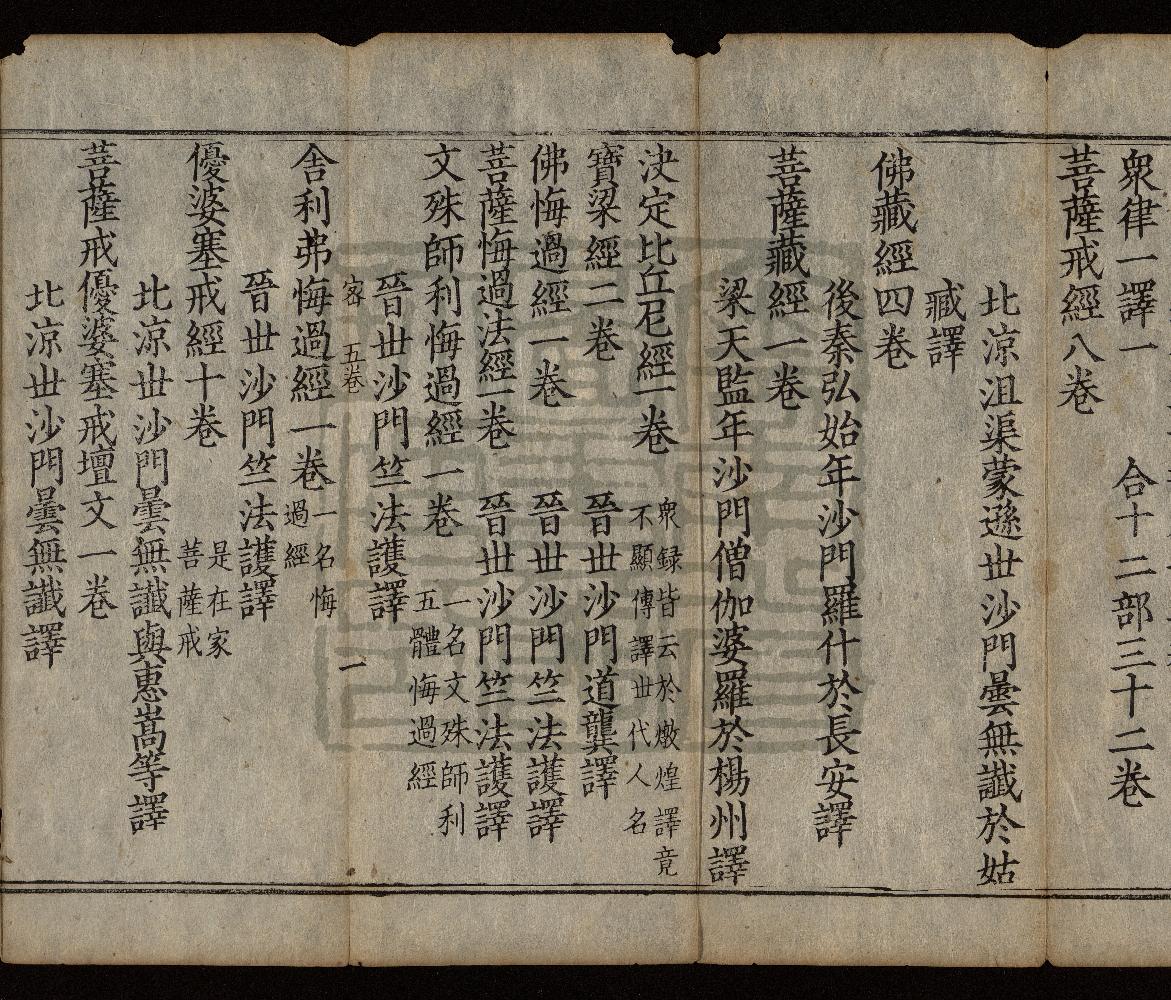 衆律一譯一 合十二部三十二卷
菩薩戒經八卷
北涼沮渠蒙遜世沙門曇無讖於姑
臧譯
佛藏經四卷
後秦弘始年沙門羅什於長安譯
菩薩藏經一卷
梁天監年沙門僧伽婆羅於楊州譯
決定比丘尼經一卷 衆録皆云於燉煌譯竟
不顯傳譯世代人名
寶梁經二卷 晉世沙門道龔譯
佛悔過經一卷 晉世沙門竺法護譯
菩薩悔過法經一卷 晉世沙門竺法護譯
文殊師利悔過經一卷 一名文殊師利
五體悔過經
晉世沙門竺法護譯
五卷 一
舎利弗悔過經一卷 一名悔
過經
晉世沙門竺法護譯
優婆塞戒經十卷 是在家
菩薩戒
北涼世沙門曇無讖與惠嵩等譯
菩薩戒優婆塞戒壇文一卷
北涼世沙門曇無讖譯